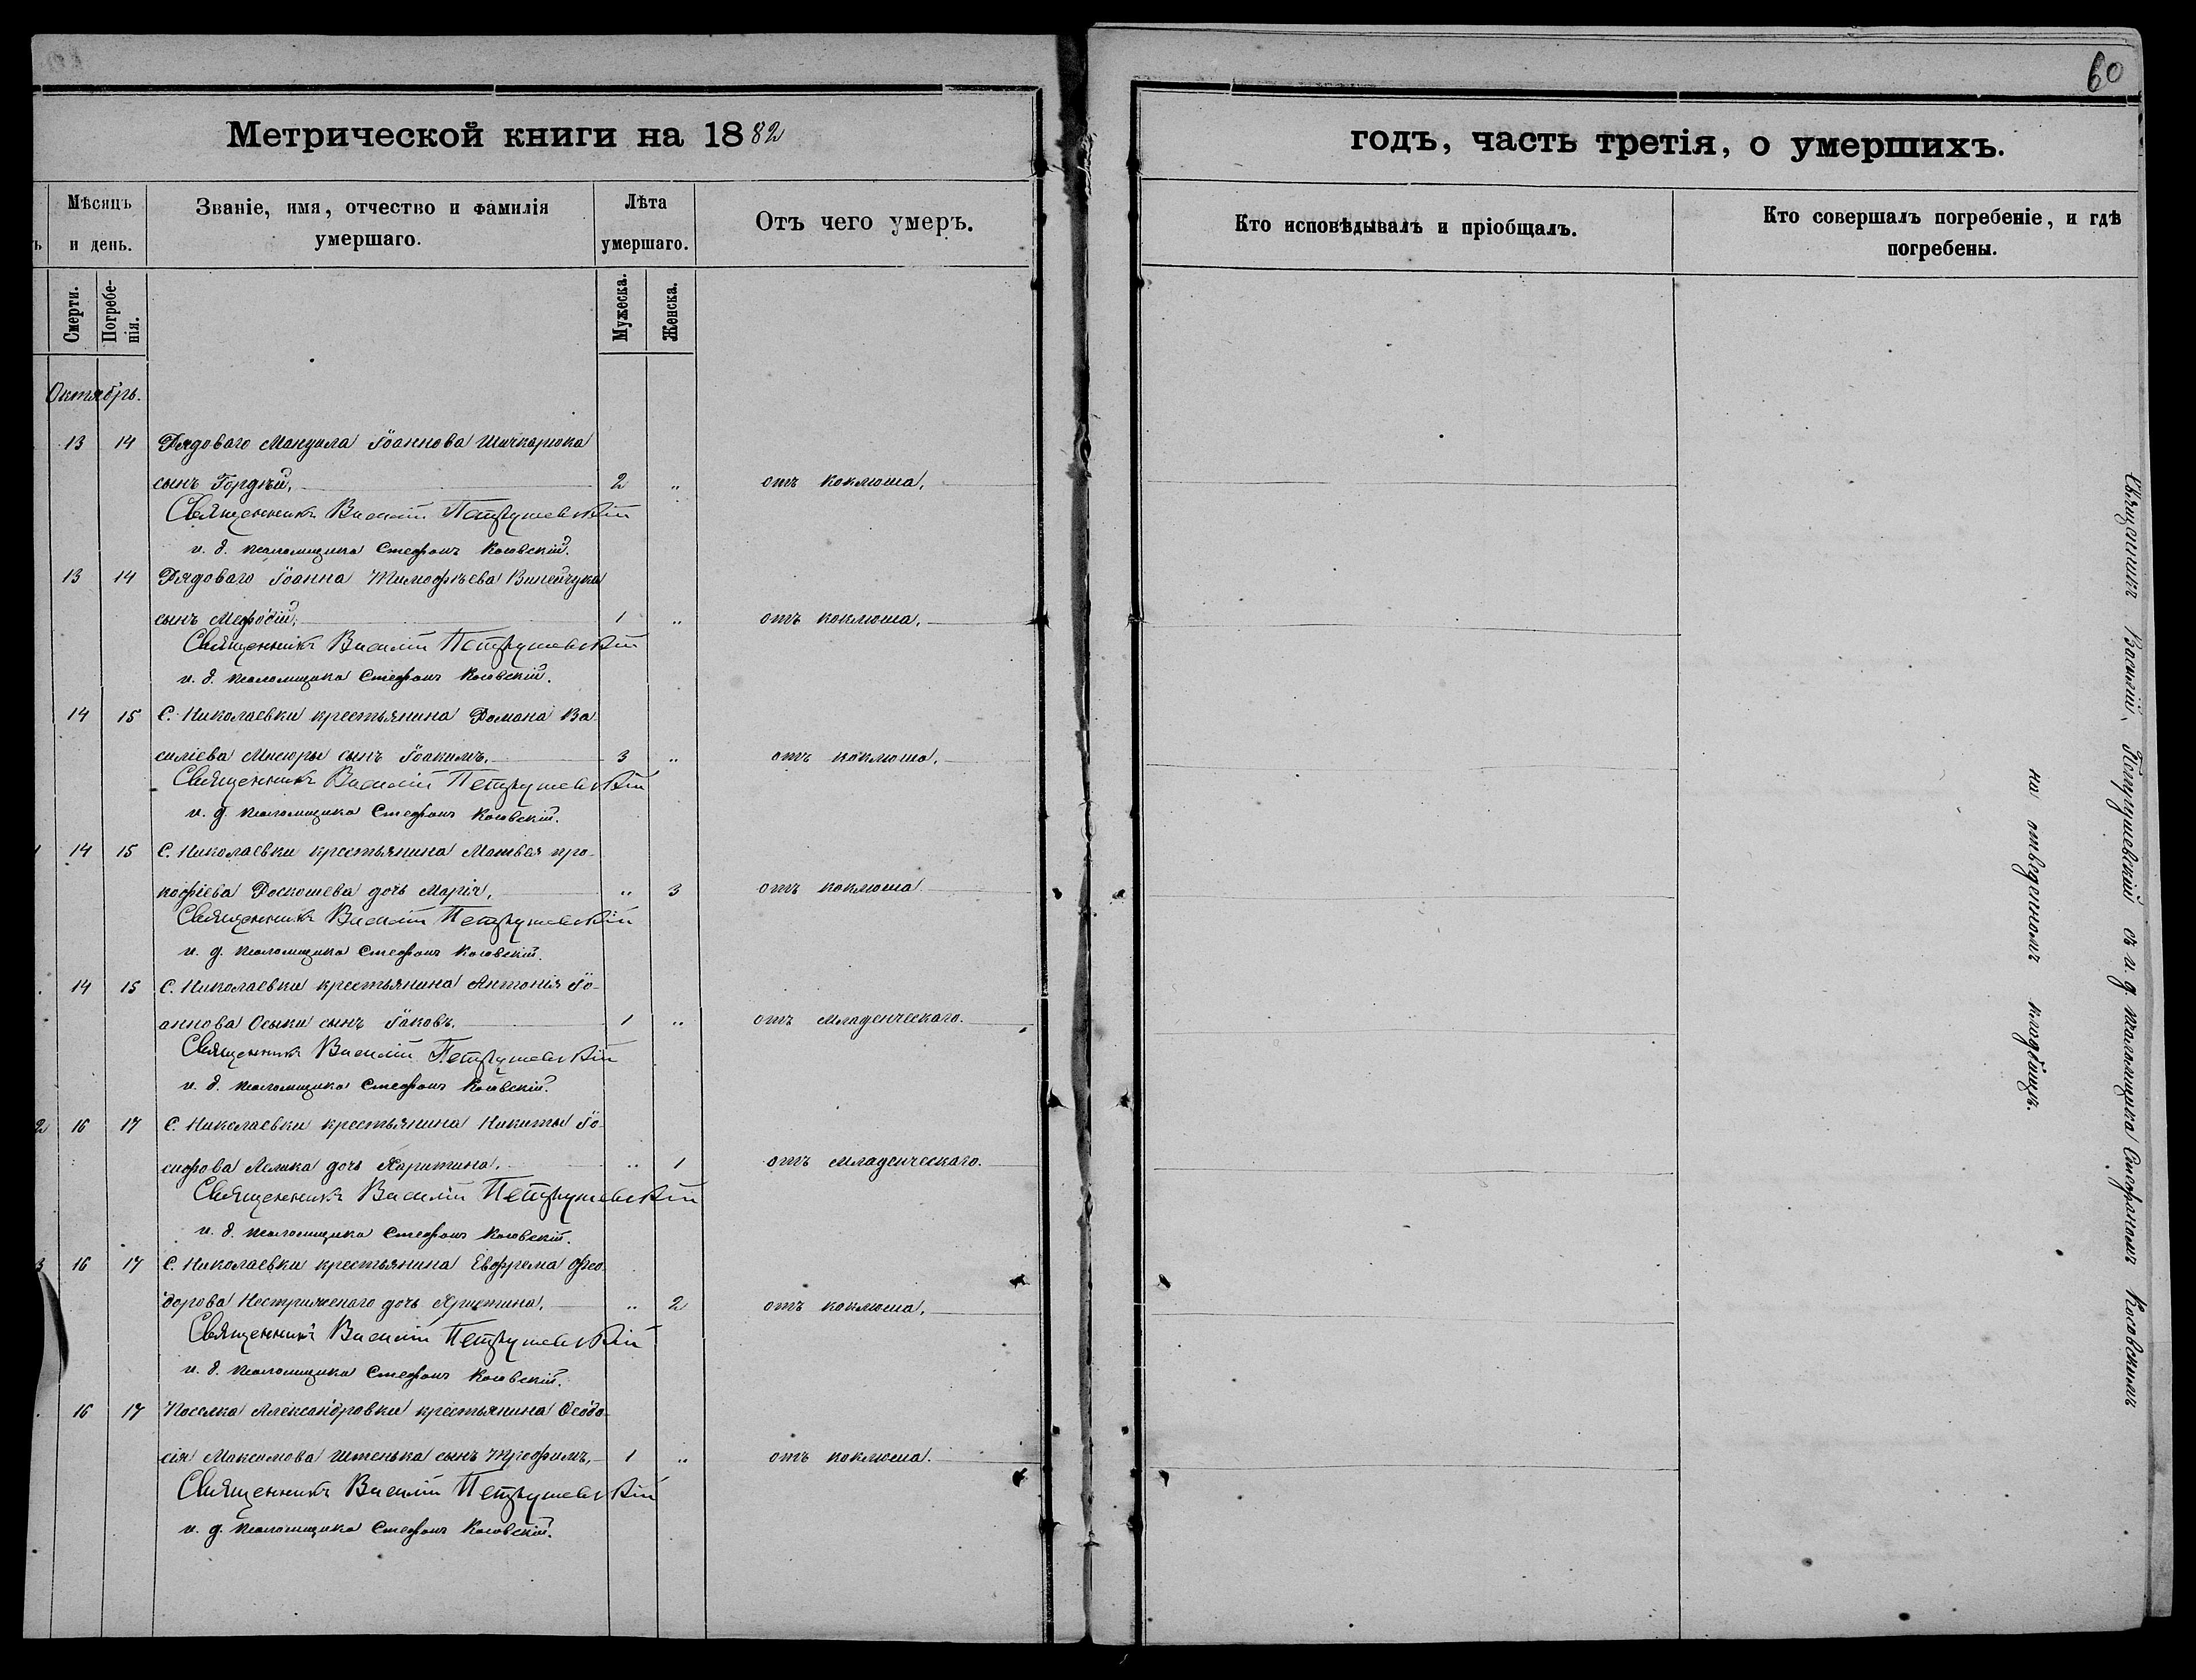 60
Метрической книги на 1882
годъ, часть третія, о умершихъ.
Мѣсяцъ и день.
Званіе, имя, отчество и фамилія умершаго.
Лѣта умершаго.
Отъ чего умеръ.
Кто исповѣдывалъ и пріобщалъ.
Кто совершалъ погребеніе, и гдѣ погребены.
Смерти.
Погребенія.
Мужеска.
Женска.
Октябрь.
13 14 Рядоваго Іоаннова
сынъ Гордѣй, 2 „ отъ коклюша.
Священникъ Василій Петрушевскій
и. д. псаломщика Стефанъ Косовскій.
13 14 Рядоваго Іоанна Тимофѣева
сынъ Мефодій, 1 „ отъ коклюша.
Священникъ Василій Петрушевскій
и. д. псаломщика Стефанъ Косовскій.
14 15 С. Николаевки крестьянина Романа Ва-
силіева Мисюры сынъ Іоакимъ. 3 „ отъ коклюша.
Священникъ Василій Петрушевскій
и. д. псаломщика Стефанъ Косовскій.
14 15 С. Николаевки крестьянина Матвея про-
кофіева дочь Марія, „ 3 отъ коклюша
Священникъ Василій Петрушевскій
и. д. псаломщика Стефанъ Косовскій.
14 15 С. Николаевки крестьянина Антонія Іо-
аннова Осыки сынъ Іаковъ. 1 „ отъ младенческаго.
Священникъ Василій Петрушевскій
и. д. псаломщика Стефанъ Косовскій.
2 16 17 С. Николаевки крестьянина Никиты Іо-
сифова дочь Харитина. „ 1 отъ младенческаго.
Священникъ Василій Петрушевскій
и. д. псаломщика Стефанъ Косовскій.
3 16 17 С. Николаевки крестьянина Евфрема Фео-
дорова дочь Христина. „ 2 отъ коклюша.
Священникъ Василій Петрушевскій
и. д. псаломщика Стефанъ Косовскій.
16 17 Поселка Александровки крестьянина Ѳеодо-
сія Максимова Штенька сынъ Трофимъ, 1 „ отъ коклюша.
Священникъ Василій Петрушевскій
и. д. псаломщика Стефанъ Косовскій.
Священникъ Василій Петрушевскій съ и. д. псаломщика Стефаномъ Косовскимъ
на отведенномъ кладбищѣ.